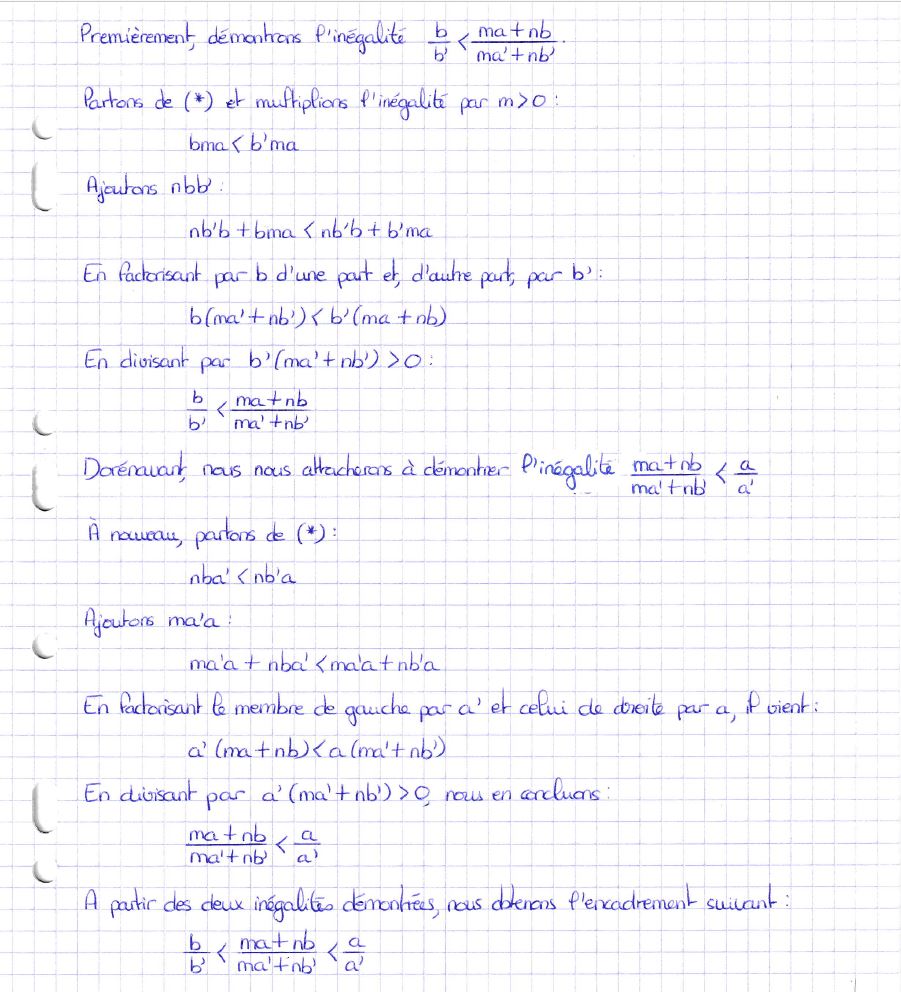 Premièrement, démontrons l'inégalité b/b' < (ma+nb)/(ma'+nb').
Partons de (*) et multiplions l'inégalité par m>0 :
bma < b'ma
Ajoutons nbb' :
nb'b + bma < nb'b + b'ma
En factorisant par b d'une part et, d'autre part, par b' :
b(ma'+nb') < b'(ma+nb)
En divisant par b'(ma'+nb') > 0 :
b/b' < (ma+nb)/(ma'+nb')
Dorénavant, nous nous attacherons à démontrer l'inégalité (ma+nb)/(ma'+nb') < a/a'
À nouveau, partons de (*) :
nba' < nb'a
Ajoutons ma'a :
ma'a + nba' < ma'a + nb'a
En factorisant le membre de gauche par a' et celui de droite par a, il vient :
a'(ma+nb) < a(ma'+nb')
En divisant par a'(ma'+nb') > 0, nous en concluons :
(ma+nb)/(ma'+nb') < a/a'
A partir des deux inégalités démontrées, nous obtenons l'encadrement suivant :
b/b' < (ma+nb)/(ma'+nb') < a/a'